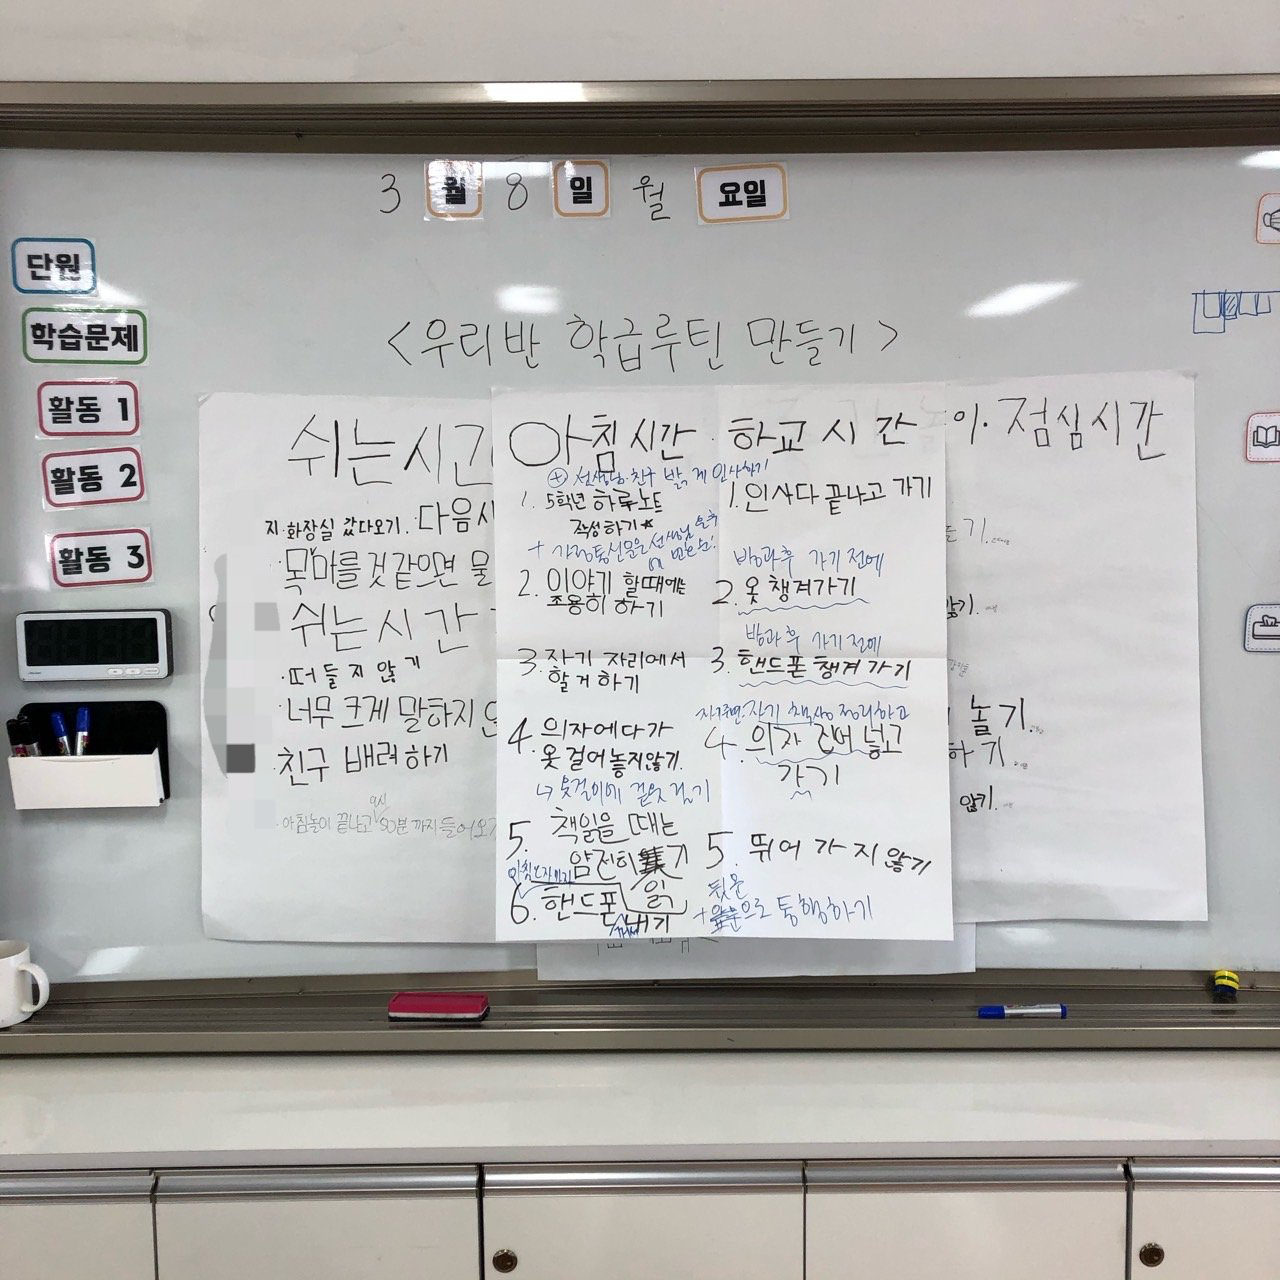 3 월 8 일 월 요일
단원
학습문제
활동 1
활동 2
활동 3
<우리반 학급루틴 만들기>
쉬는시간
화장실 갔다오기. 다음
목마를것같으면 물
쉬는시간
떠들지 않기
너무 크게 말하지
친구 배려하기
아침놀이 끝나고 50분 까지 들어오기
아침시간
⊕ 선생님·친구 밝게 인사하기
1. 5학년 하루노트
작성하기★
+ 가정통신문은 선생님
2. 이야기 할때에는
조용히 하기
3. 자기 자리에서
할 거 하기
4. 의자에다가
옷 걸어놓지않기.
↳ 옷걸이에 겉옷 걸기
5. 책읽을 때는
얌전히 읽기
6. 핸드폰 내기
하교시간
1. 인사다 끝나고 가기
방과후 가기 전에
2. 옷 챙겨가기
방과후 가기 전에
3. 핸드폰 챙겨 가기
자기 책상 정리하고
4. 의자 집어 넣고
가기
5. 뛰어 가지 않기
뒷문
+ 으로 통행하기
점심시간
않기.
놀기.
하기.
않기.